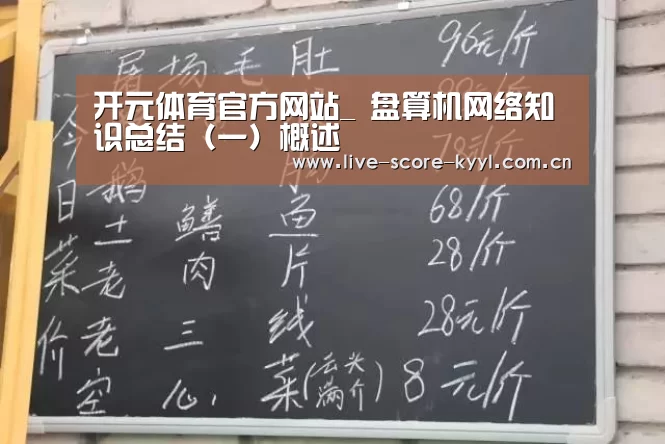 屠场毛肚 96元/份
开元体育官方网站_ 盘算机网络知
识总结（一）概述
www.live-score-kyyl.com.cn
今日菜价
鹅
土鳝鱼 68/份
老肉片 28/份
老三线 28元/份
空心菜(云头满介) 8元/份